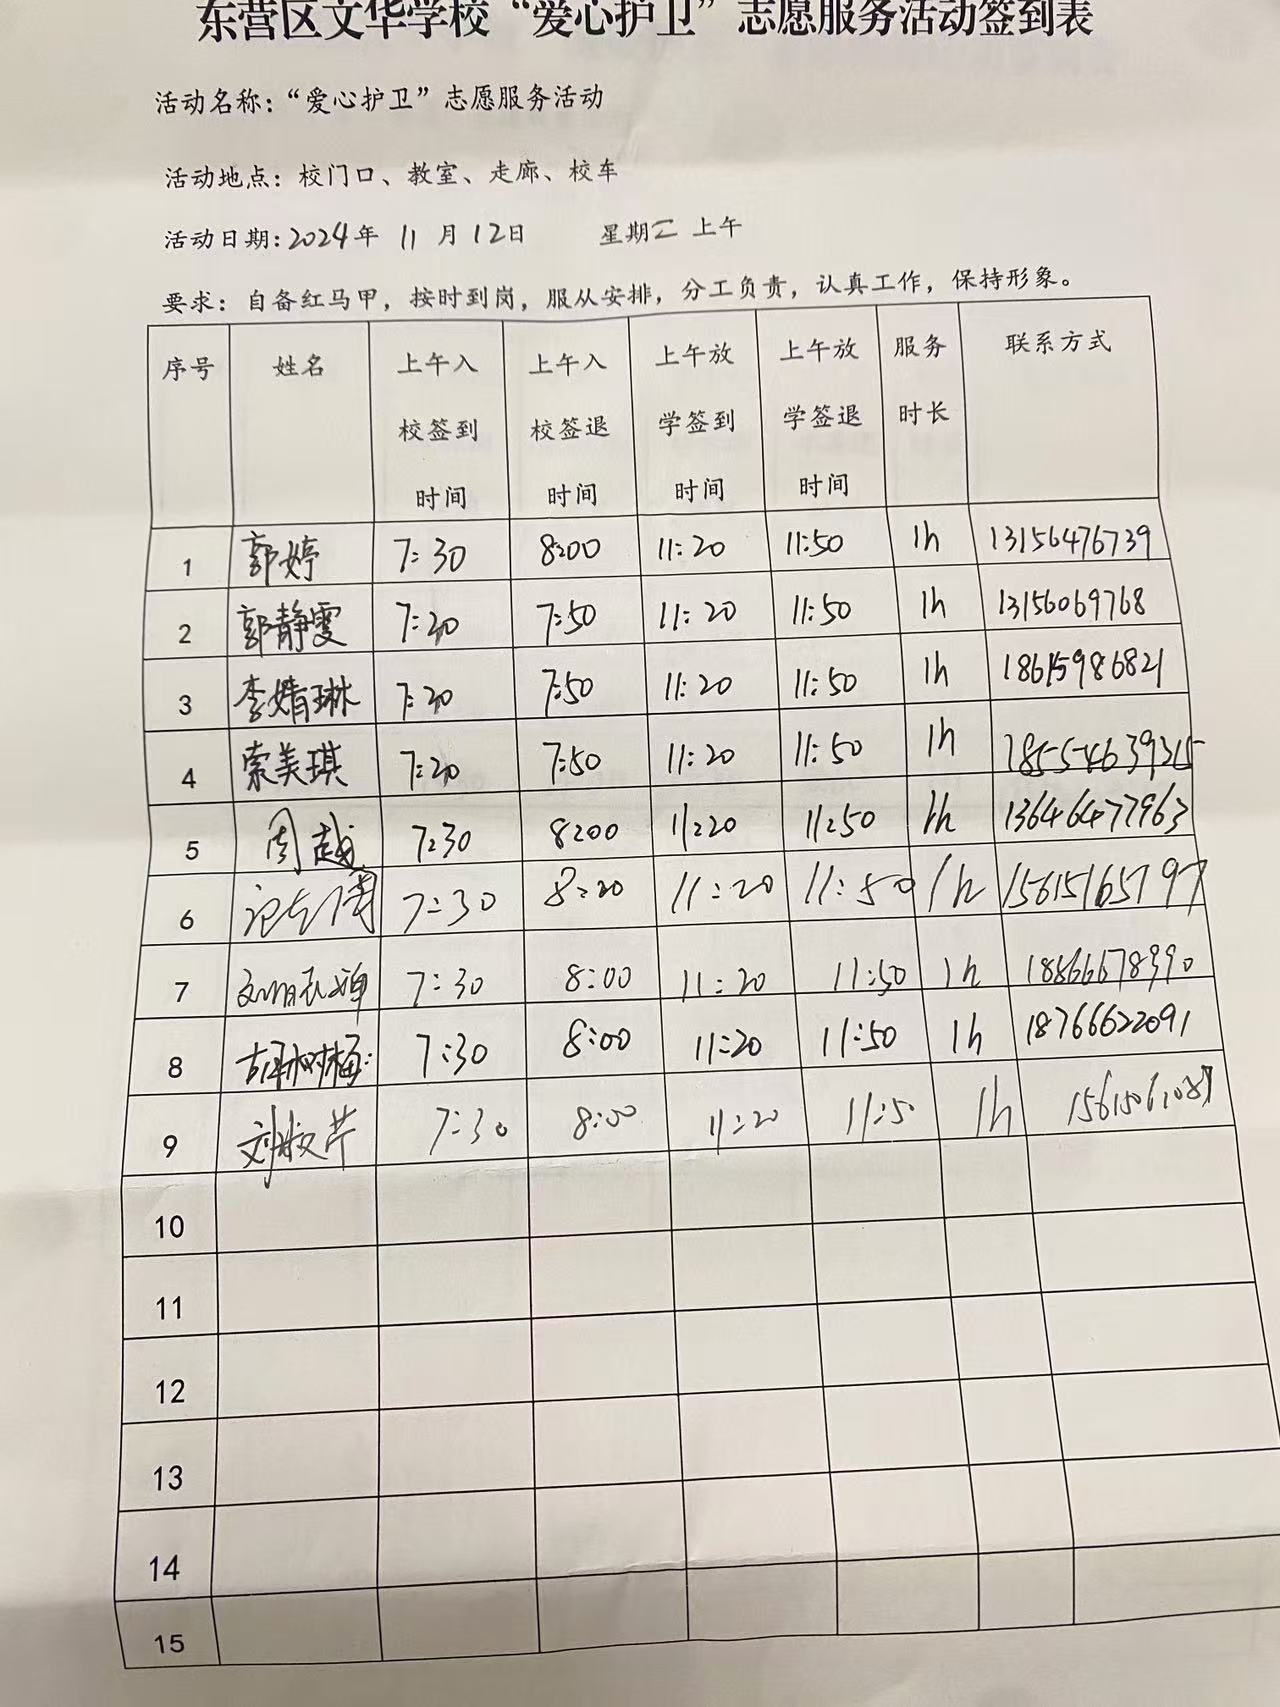 东营区文华学校“爱心护卫”志愿服务活动签到表
活动名称：“爱心护卫”志愿服务活动
活动地点：校门口、教室、走廊、校车
活动日期：2024年 11 月 12日 星期二 上午
要求：自备红马甲，按时到岗，服从安排，分工负责，认真工作，保持形象。
序号 姓名 上午入校签到时间 上午入校签退时间 上午放学签到时间 上午放学签退时间 服务时长 联系方式
1 郭婷 7:30 8:00 11:20 11:50 1h 13156476739
2 郭静雯 7:20 7:50 11:20 11:50 1h 13156069768
3 李婧琳 7:20 7:50 11:20 11:50 1h 18615986821
4 索美琪 7:20 7:50 11:20 11:50 1h
5 周越 7:30 8:00 11:20 11:50 1h 13646477963
6 7:30 11:20 11:50 1h 15615165797
7 7:30 8:00 11:20 11:50 1h
8 胡树梅 7:30 8:00 11:20 11:50 1h 18766622091
9 刘淑芹 7:30 8:00 11:20 11:50 1h
10
11
12
13
14
15